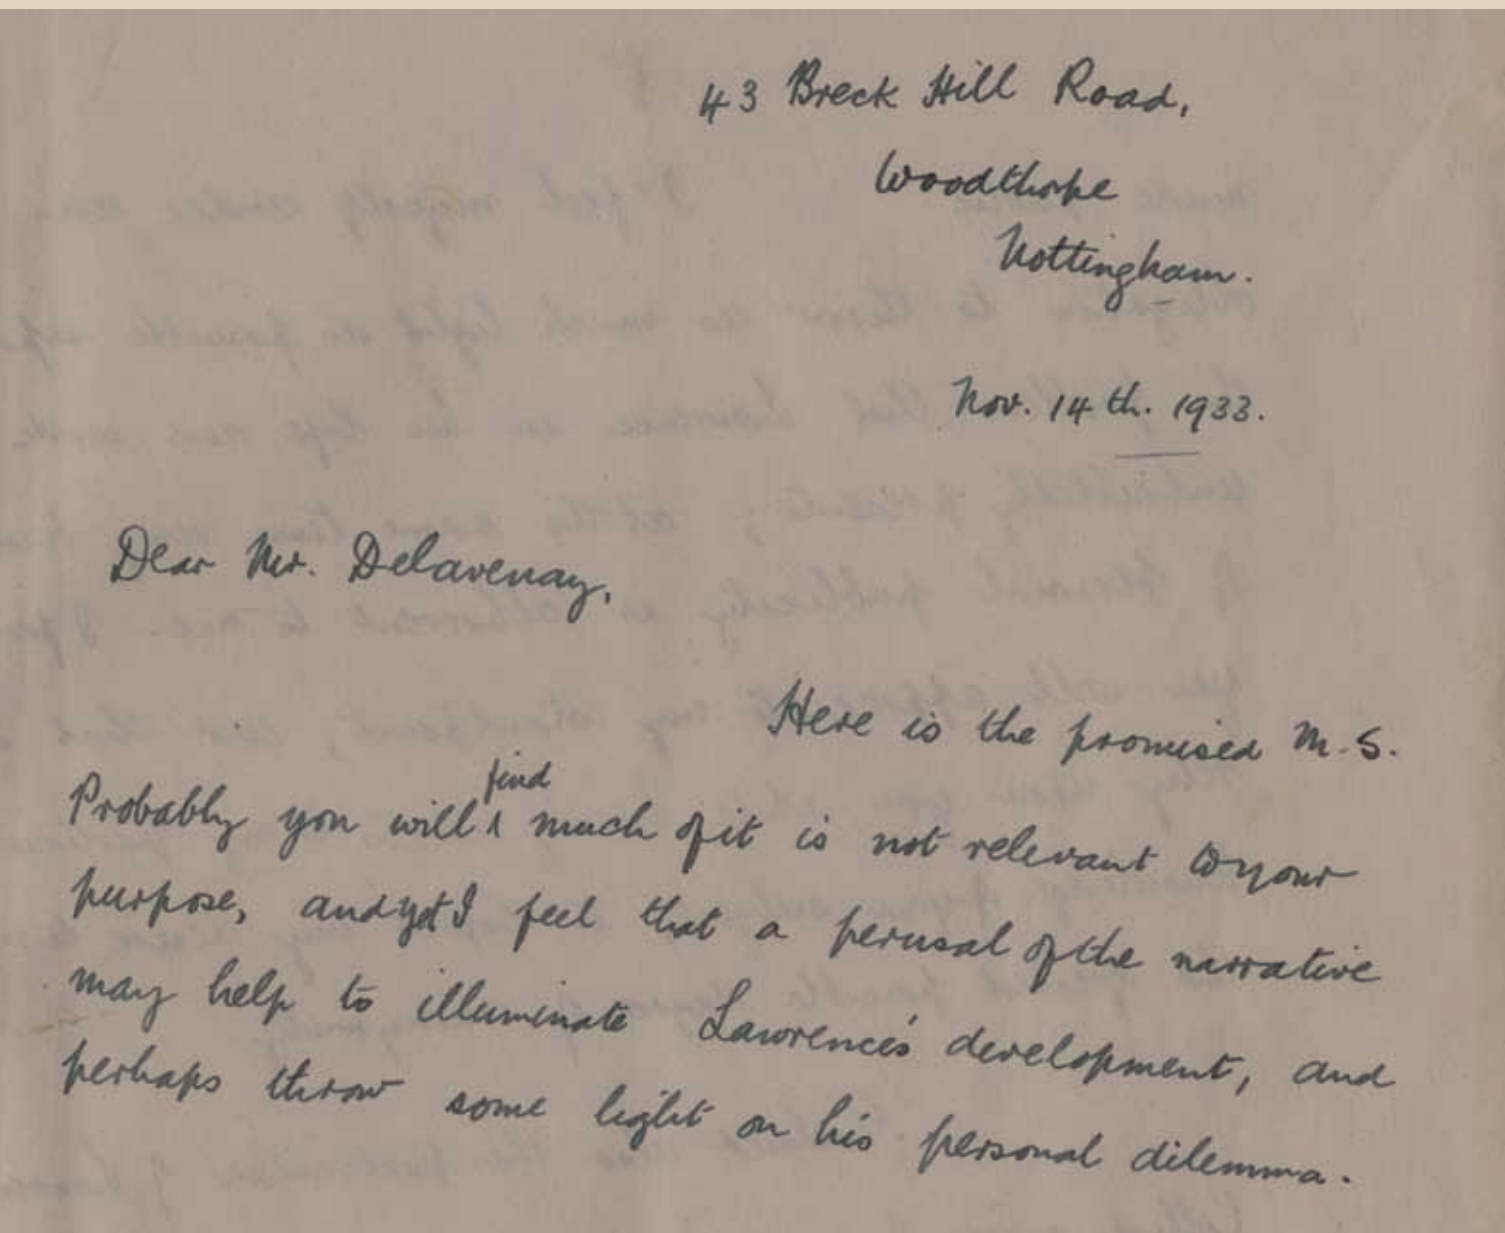 43 Breck Hill Road,
Woodthorpe
Nottingham.
Nov. 14th. 1933.
Dear Mr. Delavenay,
Here is the promised M.S.
find
Probably you will ʌ much of it is not relevant to your
purpose, and yet I feel that a perusal of the narrative
may help to illuminate Lawrence's development, and
perhaps throw some light on his personal dilemma.